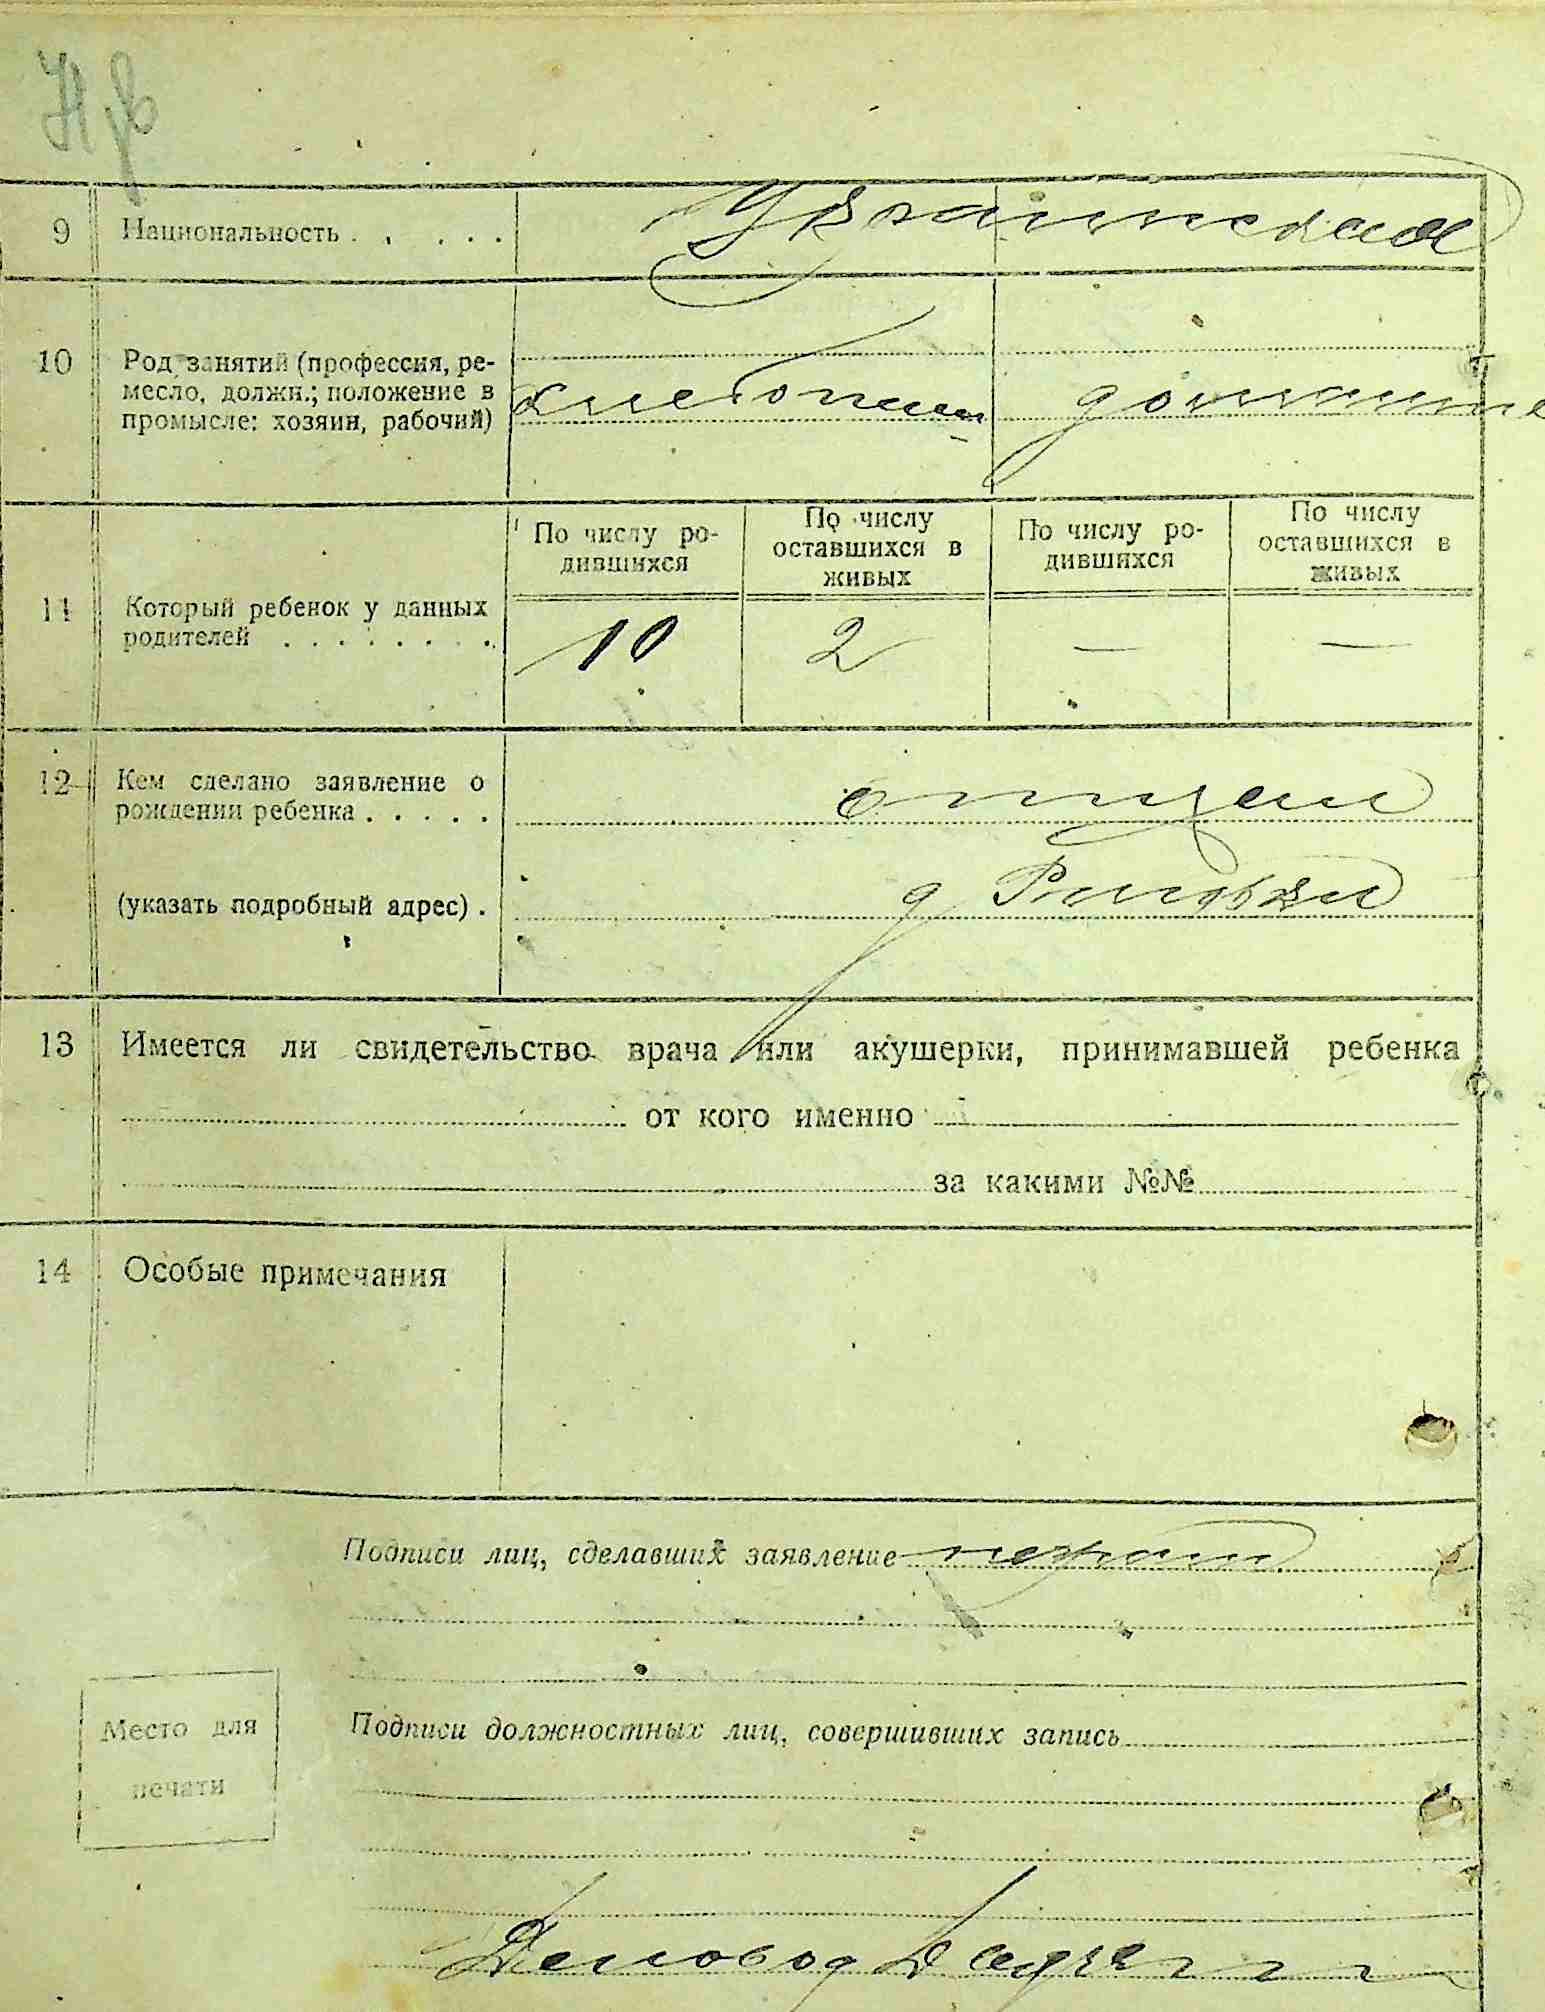 9 Национальность . . . . . . Украинская
10 Род занятий (профессия, ре-
месло, должн.; положение в
промысле: хозяин, рабочий) хлебопаш домашне
По числу ро-
дившихся
По числу
оставшихся в
живых
По числу ро-
дившихся
По числу
оставшихся в
живых
11 Который ребенок у данных
родителей . . . . . . . . 10 2 — —
12 Кем сделано заявление о
рождении ребенка . . . . . отцем
(указать подробный адрес) . д
13 Имеется ли свидетельство врача или акушерки, принимавшей ребенка
от кого именно
за какими №№
14 Особые примечания
Подписи лиц, сделавших заявление неграм
Место для
печати
Подписи должностных лиц, совершивших запись
Деловод